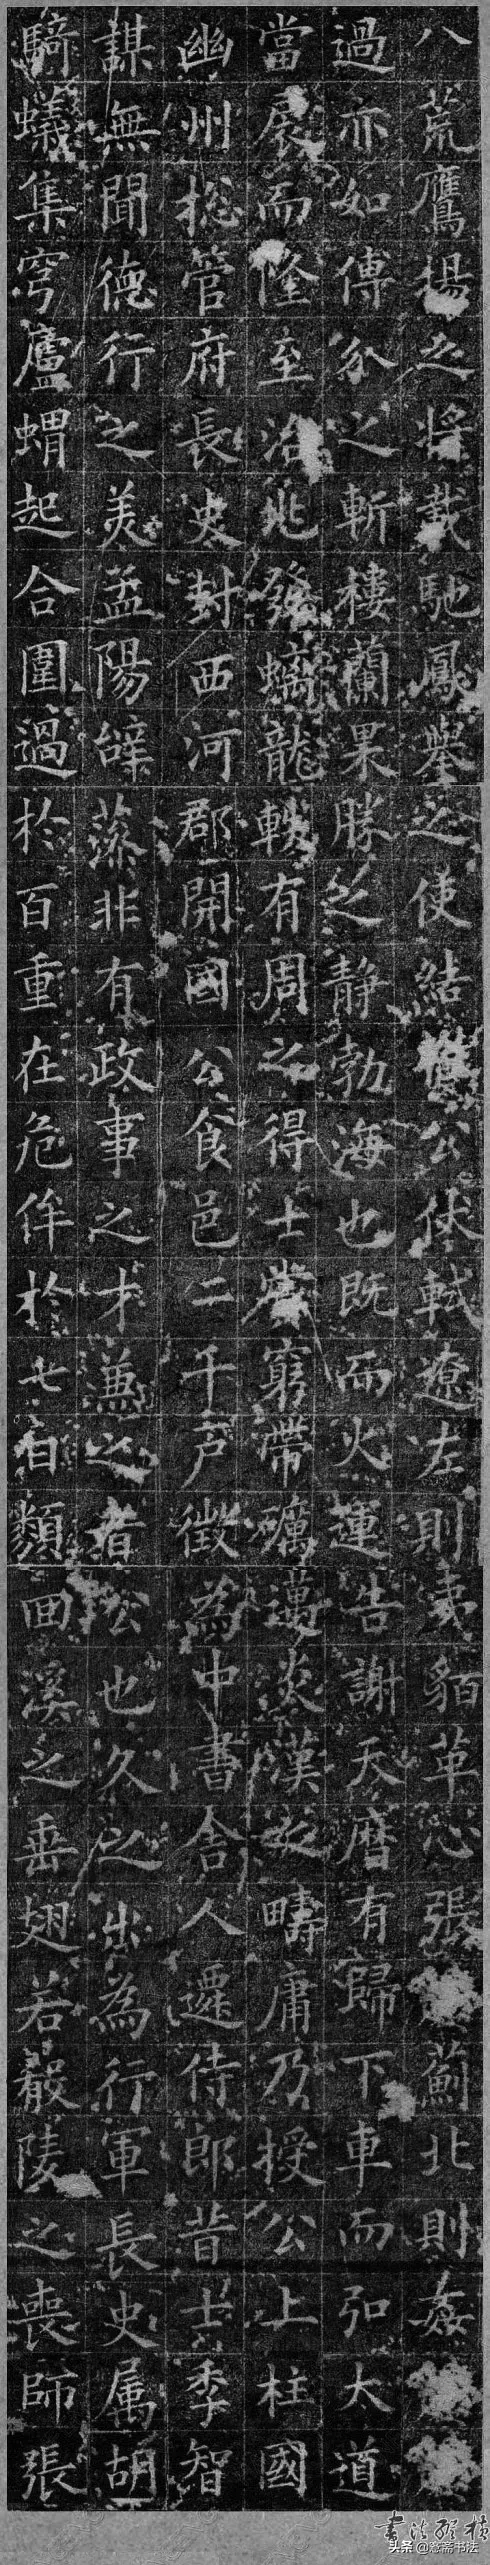 八荒鷹揚之将載馳鳳舉之使結公伏軾遼左則夷貊革心張薊北則姦
過亦如傅介之斬樓蘭果勝之静勃海也既而火運告謝天暦有歸下車而弘大道
當扆而隆至治兆發螭龍軼有周之得士業窮帶礪邁炎漢之疇庸乃授公上柱國
幽州捴管府長史封西河郡開國公食邑二千户徴為中書舍人遷侍郎昔士季智
謀無聞德行之美孟陽辭藻非有政事之才兼之者公也久之出為行軍長史属胡
騎蟻集穹廬蝟起合圍過於百重在危侔於七日類回溪之垂翅若嚴陵之喪師張
書法
头条 @意斋书法